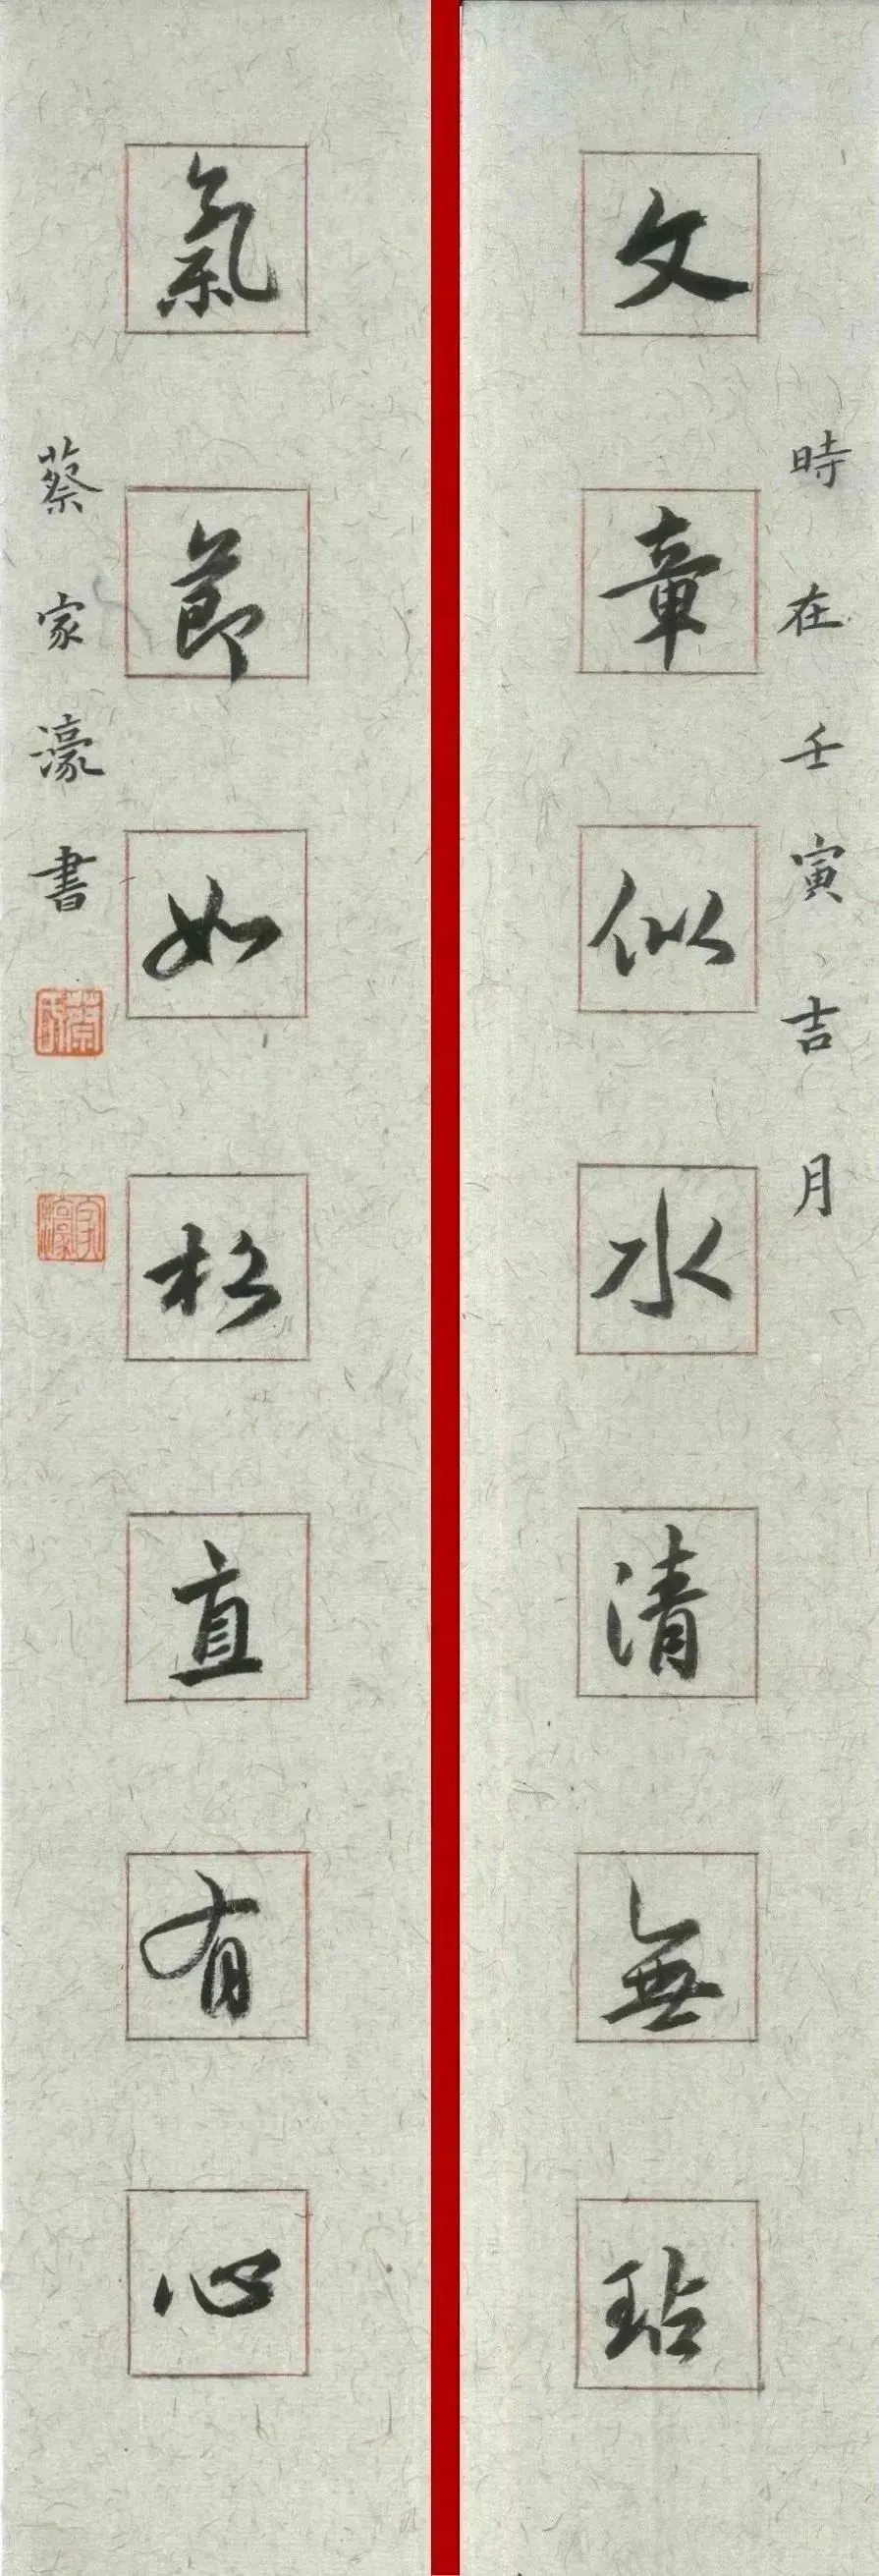 時在壬寅吉月
文章似水清無玷
氣節如松直有心
蔡家濠書